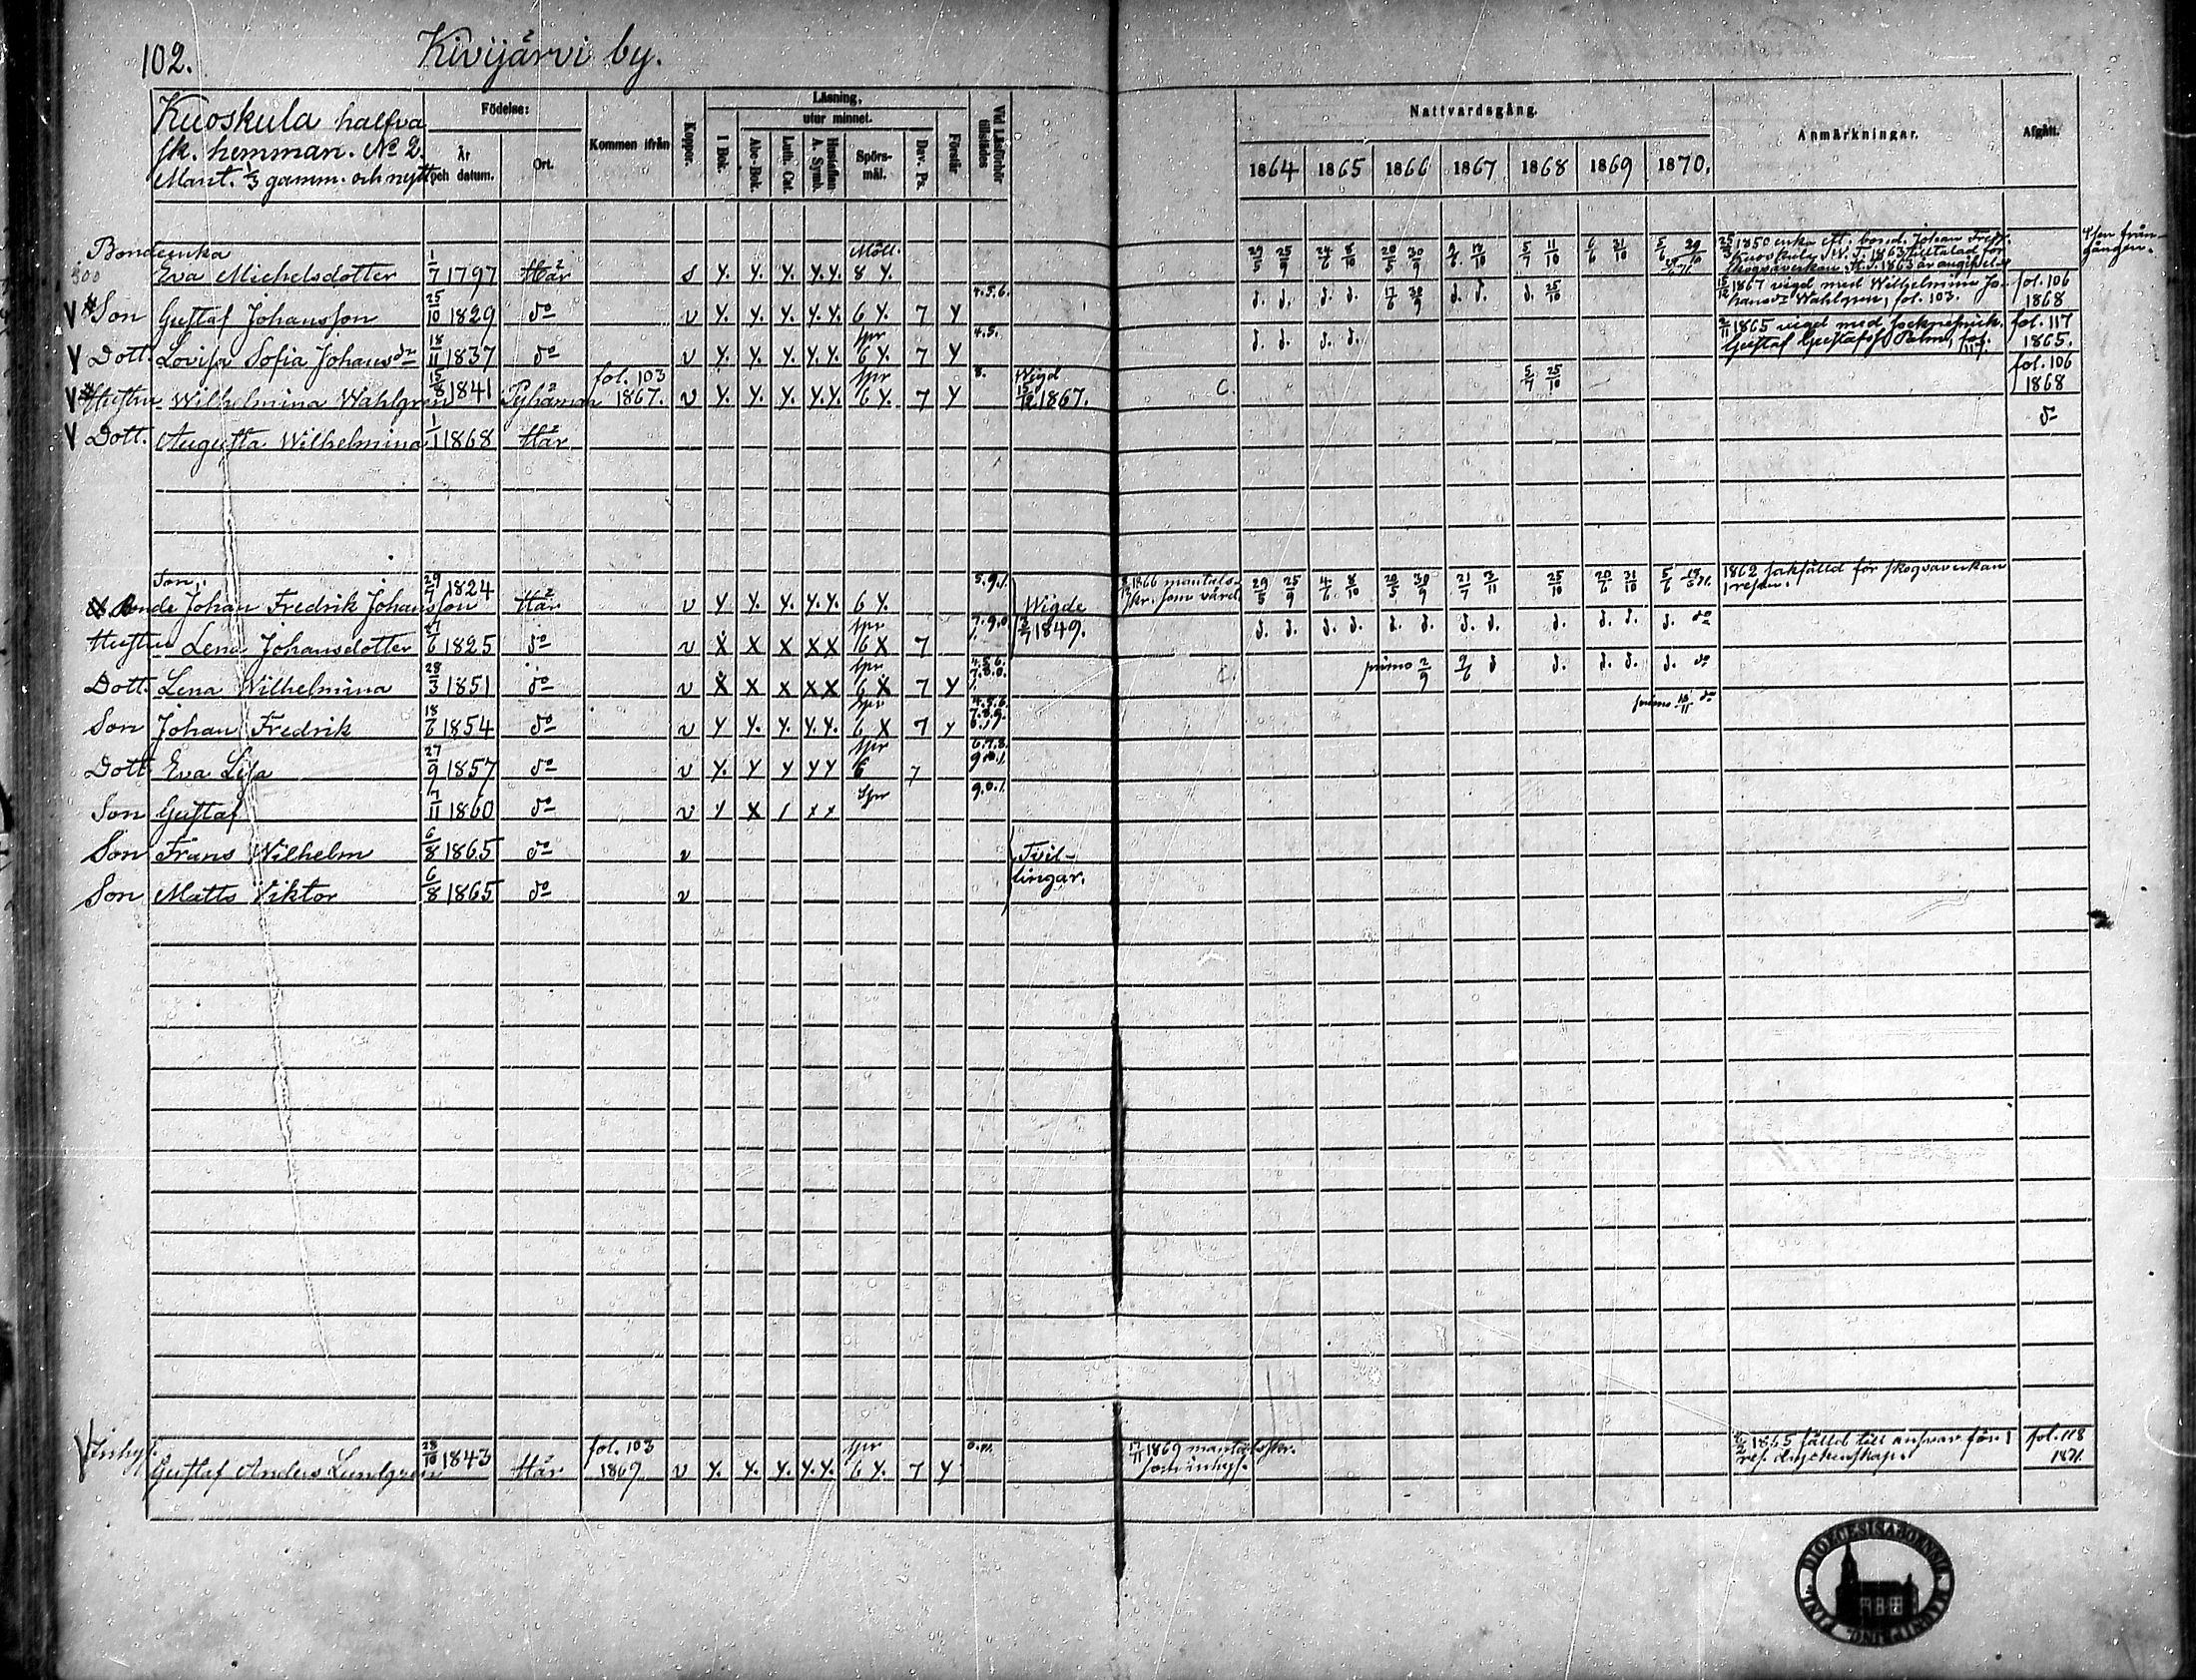 102. Kivijärvi by.
Kuoskula halfva
sk. hemman. No 2.
Mant. 1/3 gamm. och nytt
Födelse:
År och datum.
Ort.
Kommen ifrån
Koppor.
Läsning,
utur minnet.
I Bok.
Abc-Bok.
Luth. Cat.
Hustaflan A. Symb.
Spörs-mål.
Dav. Ps.
Förstår
Vid Läsförhör tillstädes
Nattvardsgång.
1864 1865 1866 1867 1868 1869 1870.
Anmärkningar.
Afgått.
Bondeenka
Eva Michelsdotter 1/7 1797 Här s Y. Y. Y. Y.Y. 8 Y. 29/5 25/9 24/6 8/10 20/5 30/9 9/6 18/10 5/7 11/10 6/6 31/10 5/6
25/3 1850 enka eft. bond. Johan Fredr.
Son Gustaf Johansson 25/10 1829 do v Y. Y. Y. Y.Y. 6 Y. 7 Y 4.5.6. d. d. d. d. 17/6 30/9 d. d. d. 25/10
15/12 1867 vigd med Wilhelmina Johansdr Wahlgren, fol. 103. fol. 106 1868
Dott. Lovisa Sofia Johansdr 18/11 1837 do v Y. Y. Y. Y.Y. spr 6 Y. 7 Y 4.5. d. d. d. d.
2/11 1865 vigd med
Gustaf Gustafss. Palm, fol. 117. fol. 117 1865.
Hustru Wilhelmina Wahlgren 15/8 1841 Pyhämaa fol. 103 1867. v Y. Y. Y. Y.Y. spr 6 Y. 7 Y 8. Wigd 15/12 1867. C. 5/7 25/10 fol. 106 1868
Dott. Augusta Wilhelmina 1/1 1868 Här do
Son,
Bonde Johan Fredrik Johansson 29/7 1824 Här v Y Y. Y. Y.Y. 6 Y. 5.9.1. Wigde 1849. 1866 mantals-skr. som värd. 29/5 25/9 4/6 8/10 20/5 30/9 21/7 3/11 25/10 20/6 31/10 5/6 1862 sakfälld för skogsaverkan
1 resan.
Hustru Lena Johansdotter 1825 do v X X X XX spr 6 X 7 7.9.0 d. d. d. d. d. d. d. d. d. d. d. d. do
Dott. Lena Wilhelmina 28/3 1851 do v X X X XX spr 6 X 7 Y 4.5.6. 7.8.0. primo 2/9 9/6 d d. d. d. d. do
Son Johan Fredrik 18/6 1854 do v Y Y. Y. Y.Y. spr 6 X 7 Y 4.5.6. 7.8.9. primo do
Dott Eva Lisa 27/9 1857 do v Y. Y Y YY spr 6 7 6.7.8. 9.0.1.
Son Gustaf 7/11 1860 do v Y X / xx Spr 9.0.1.
Son Frans Wilhelm 6/8 1865 do v Tvil-
Son Matts Viktor 6/8 1865 do v lingar.
Inhys.
Gustaf Anders Lundgren 28/10 1843 Här fol. 103 1869 v Y. Y. Y. Y.Y. spr 6 Y. 7 Y 17/11 1869 mantalsskr.
som inhys. 1865 fälld till ansvar för 1
res. dryckenskap. fol. 118 1871.
DIOECESIS ABOENSIS